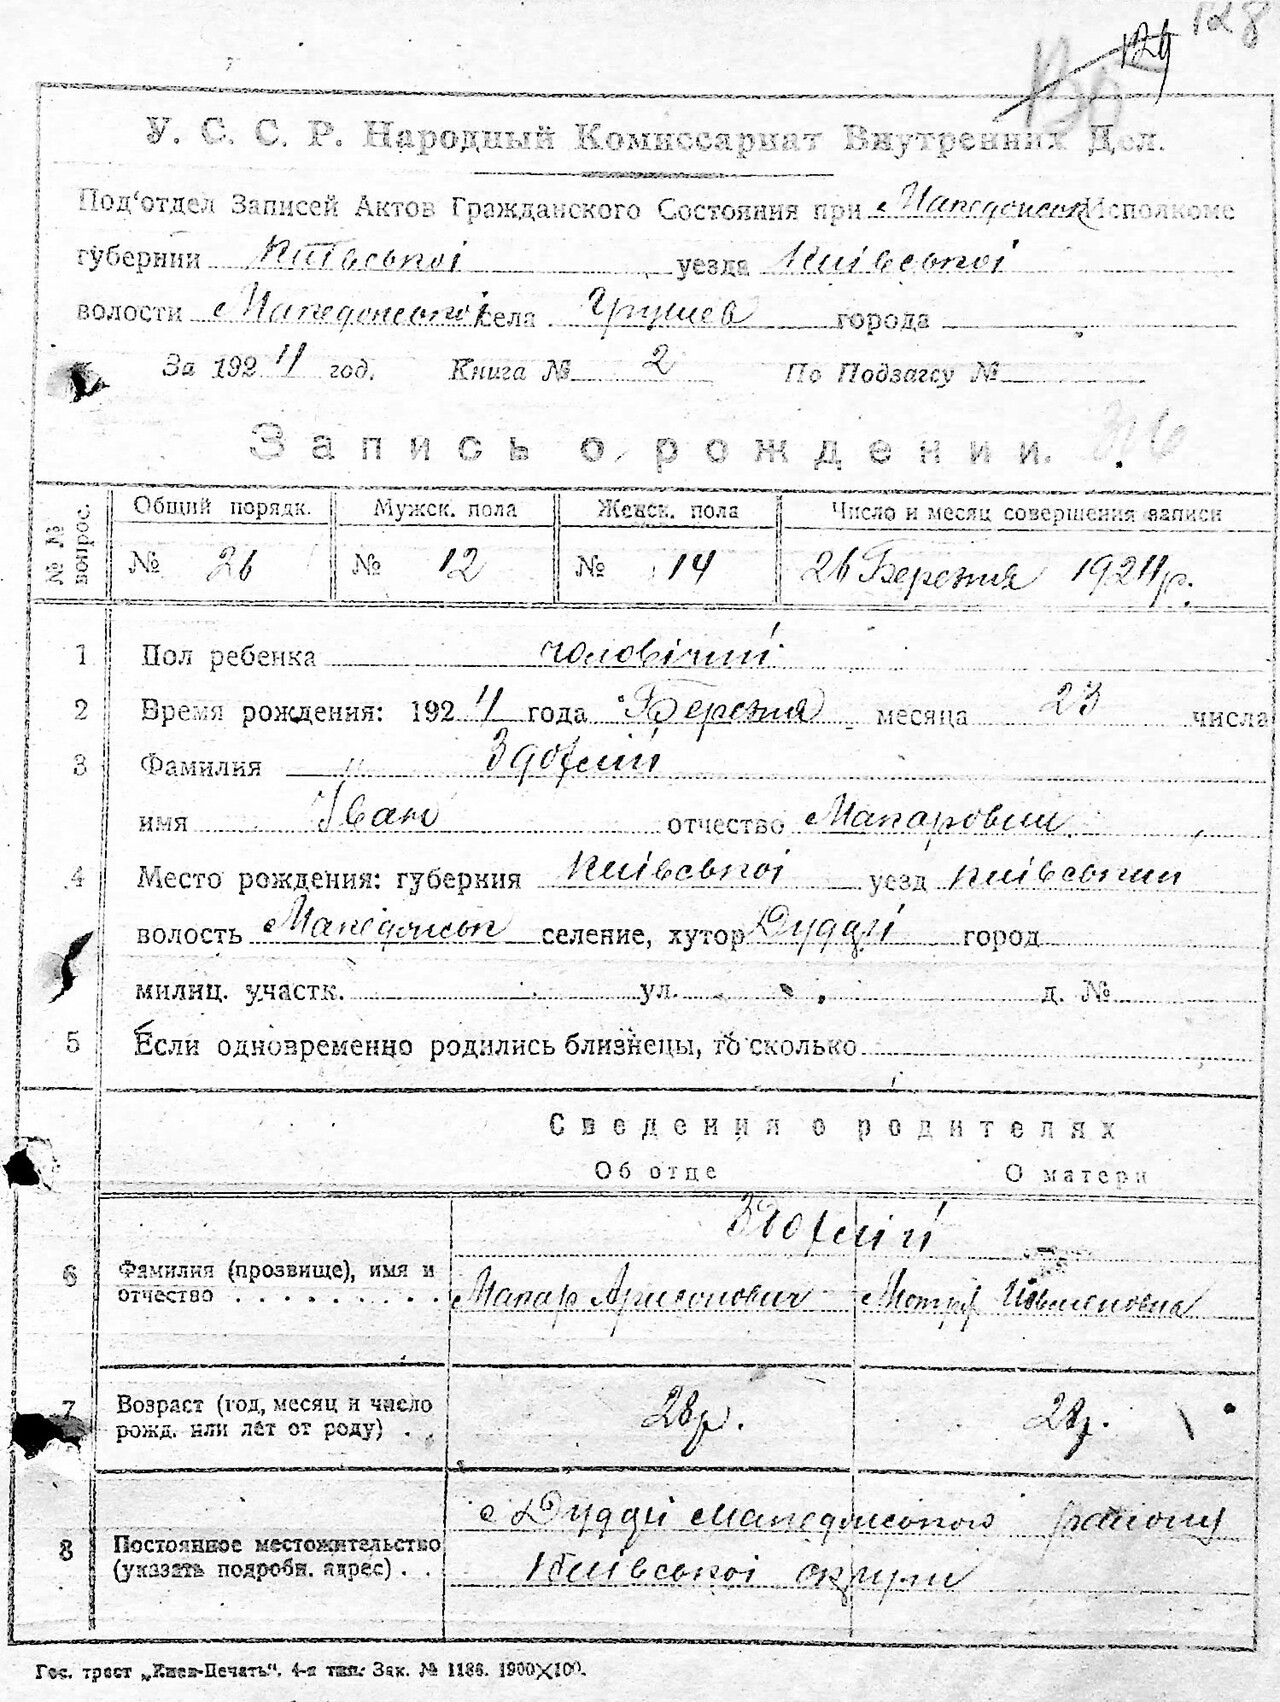 128
129
У. С. С. Р. Народный Комиссариат Внутренних Дел.
Под'отдел Записей Актов Гражданского Состояния при Македонськ Исполкоме
губернии Київської уезда Київської
волости Македонської села Грушев города
За 1924 год. Книга № 2 По Подзагсу №
Запись о рождении. 316
№ № вопрос. Общий порядк. Мужск. пола Женск. пола Число и месяц совершения записи
№ 26 № 12 № 14 26 Березня 1924 р.
1 Пол ребенка чоловічий
2 Время рождения: 1924 года Березня месяца 23 числа
3 Фамилия
имя Іван отчество Макарович
4 Место рождения: губерния Київської уезд Київський
волость Македонськ селение, хутор Дудді город
милиц. участк. ул. д. №
5 Если одновременно родились близнецы, то сколько
Сведения о родителях
Об отце О матери
6 Фамилия (прозвище), имя и
отчество . . . . . . . . . Макар Мотря
7 Возраст (год, месяц и число
рожд. или лет от роду) . . 28 р. 28 р.
с Македонського району
8 Постоянное местожительство
(указать подробн. адрес) . . Київської округи
Гос. трест „Киев-Печать“. 4-я тип. Зак. № 1186. 1900×100.